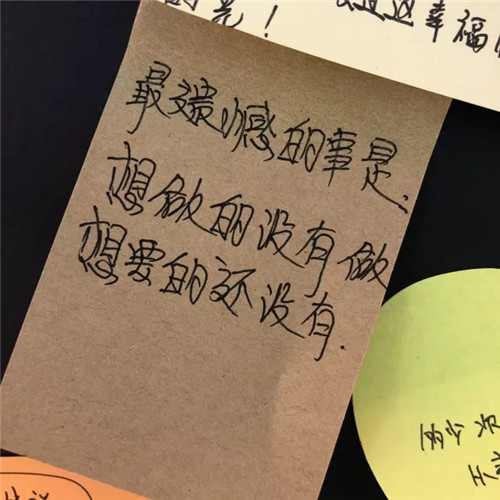 幸福
最遗憾的事是.
想做的没有做
想要的还没有.